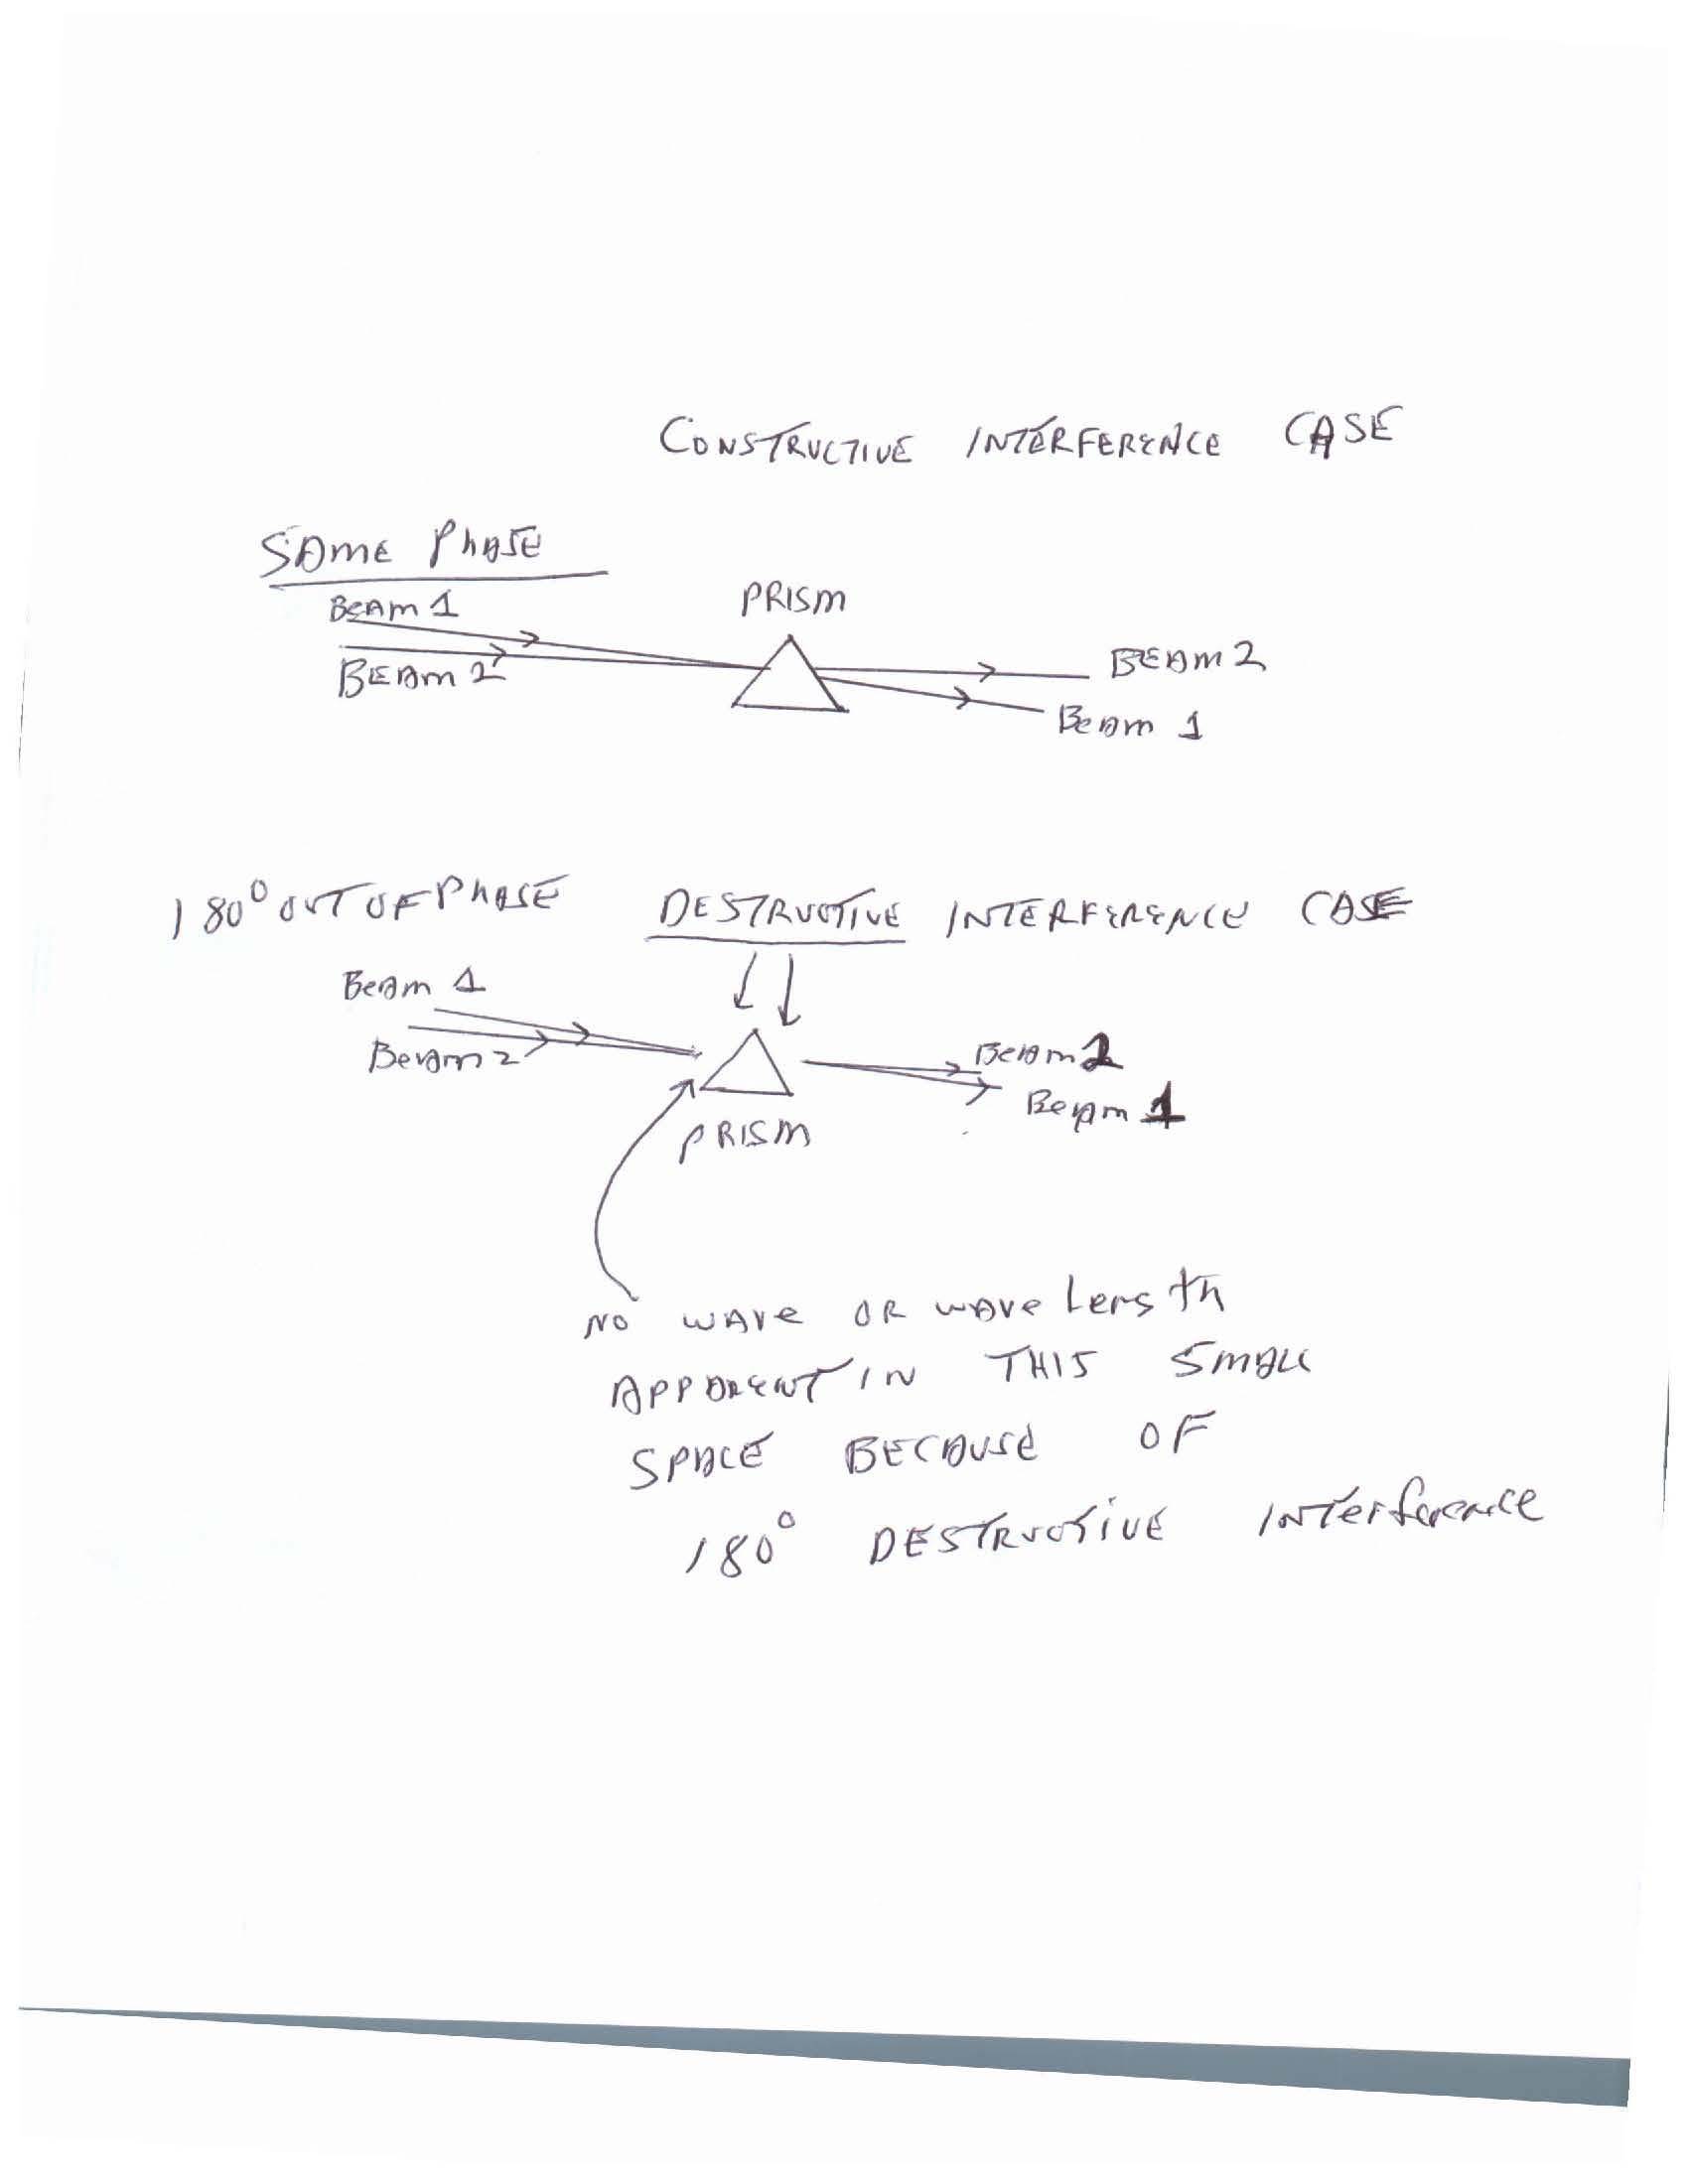 CONSTRUCTIVE INTERFERENCE CASE
SAME PHASE
BEAM 1
PRISM
BEAM 2
BEAM 2
Beam 1
180° OUT OF PHASE DESTRUCTIVE INTERFERENCE CASE
Beam 1
Beam 2
Beam 2
Beam 1
PRISM
NO WAVE OR WAVE Length
APPARENT IN THIS SMALL
SPACE BECAUSE OF
180° DESTRUCTIVE INTerference